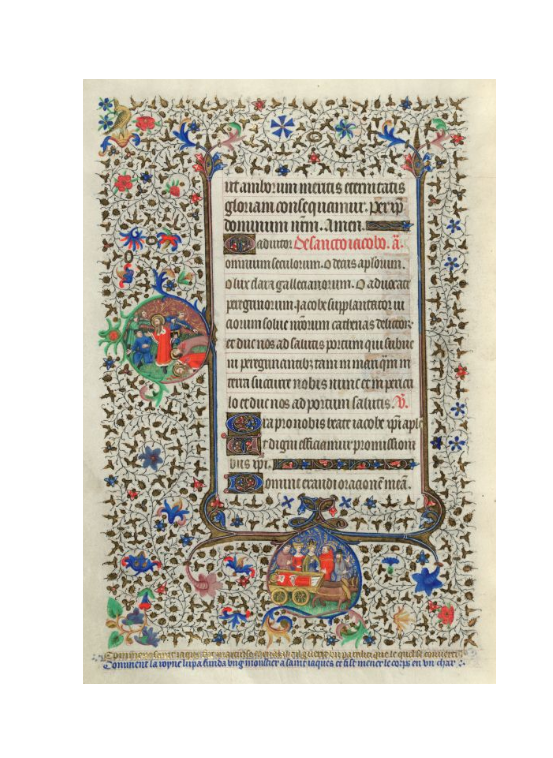 ut amborum meritis eternitatis
gloriam consequamur. per xp̄m
dominum nr̄m. Amen.
O adiutor De sancto iacobo. a.
omnium seculorum. O decus aplōrum.
O lux clara galletianorum. O aduocate
peregrinorum. Jacobe supplantator ui
ciorum solue nr̄orum cathenas delictor᷑
et duc nos ad salutis portum qui subue
ni peregrinantibꝫ tam in mari qm̄ in
terra sucurre nobis nunc et in pericu
lo et duc nos ad portum salutis. V̄.
Ora pro nobis beate iacobe xp̄i apl̄e
Ut digni efficiamur promissioni
bus xp̄i.
Domine exaudi orationē meā.
Comment saint iaques
Comment la royne lupa funda vng moustier a saint iaques et fist mener le corps en vn char